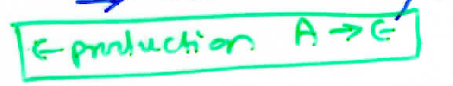 ε production A → ε